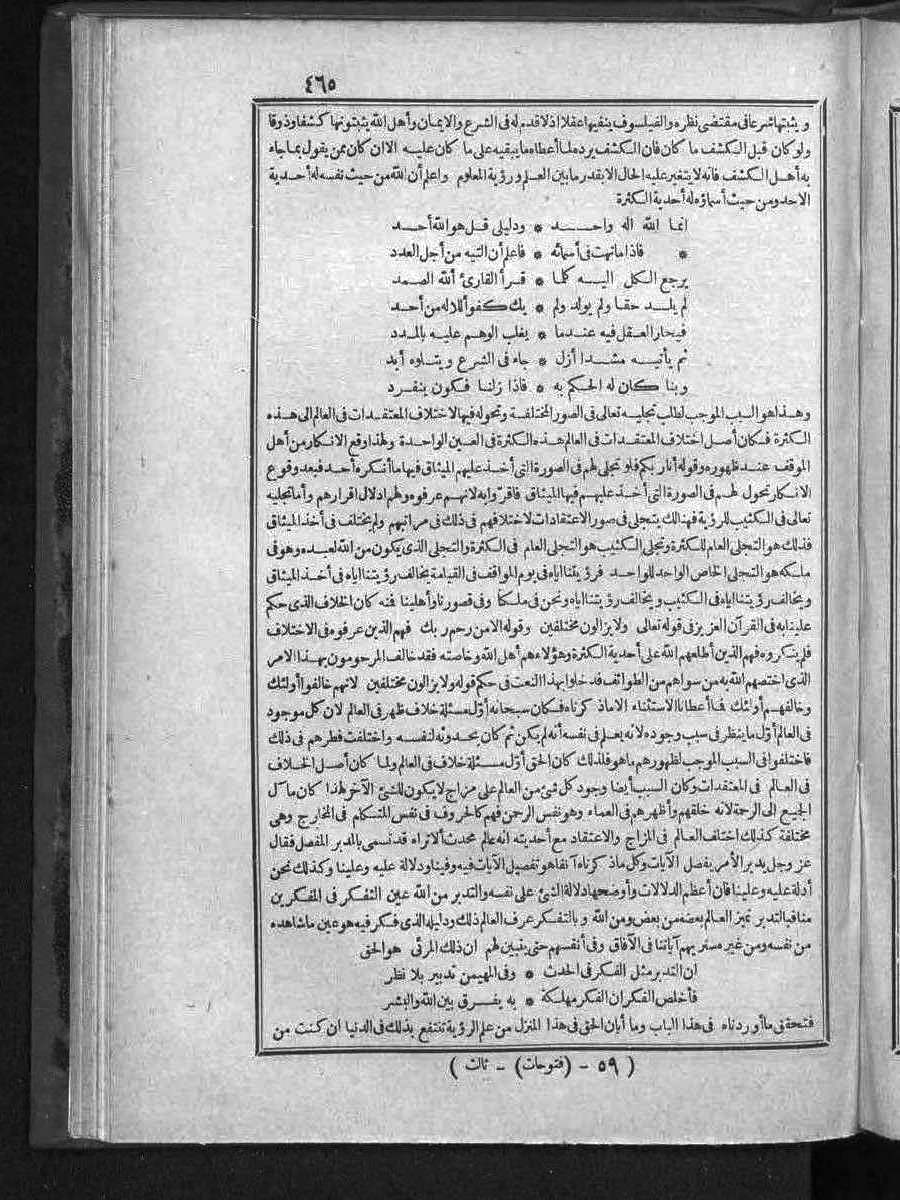 ٤٦٥
ويثبتها شرعا في مقتضى نظره والفيلسوف ينفيها عقلا اذ لا قدم له في الشرع والايمان وأهل الله يثبتونها كشفا وذوقا
ولو كان قبل الكشف ما كان فان الكشف يرده لما أعطاه ما يبقيه على ما كان عليه الا ان كان ممن يقول بما جاء
به أهل الكشف فانه لا يتغير عليه الحال الا بقدر ما بين العلم ورؤية المعلوم واعلم أن الله من حيث نفسه له أحدية
الاحد ومن حيث أسماؤه له أحدية الكثرة
انما الله اله واحد * ودليلى قل هو الله أحد
* فاذا ماتهت في أسمائه * فاعلم أن التيه من أجل العدد
يرجع الكل اليه كلما * قرأ القارئ الله الصمد
لم يلد حقا ولم يولد ولم * يك كفوأ للاله من أحد
فيحار العقل فيه عندما * يغلب الوهم عليه بالمدد
ثم يأتيه مشدا أزل * جاء في الشرع ويتلوه أبد
وبنا كان له الحكم به * فاذا زلنا فكون ينفرد
وهذا هو السبب الموجب لطلب تجليه تعالى في الصور المختلفة وتحوله فيها لاختلاف المعتقدات في العالم الى هذه
الكثرة فكان أصل اختلاف المعتقدات في العالم هذه الكثرة في العين الواحدة ولهذا وقع الانكار من أهل
الموقف عند ظهوره وقوله أنار بكم فلو تجلى لهم في الصورة التي أخذ عليهم الميثاق فيها ما أنكره أحد فبعد وقوع
الانكار تحول لهم في الصورة التي أخذ عليهم فيها الميثاق فاقرّوا به لانهم عرفوه ولهم ادلال اقرارهم وأما تجليه
تعالى في الكثيب للرؤية فهنالك يتجلى في صور الاعتقادات لاختلافهم في ذلك في مراتبهم ولم يختلف في أخذ الميثاق
فذلك هو التجلى العام للكثرة وتجلى الكثيب هو التجلى العام في الكثرة والتجلى الذي يكون من الله لعبده وهو في
ملكه هو التجلى الخاص الواحد للواحد فرؤيتنا اياه في يوم المواقف في القيامة يخالف رؤيتنا اياه في أخذ الميثاق
ويخالف رؤيتنا اياه في الكثيب ويخالف رؤيتنا اياه ونحن في ملكنا وفي قصورنا وأهلينا فمنه كان الخلاف الذي حكم
علينا به في القرآن العزيز في قوله تعالى ولا يزالون مختلفين وقوله الا من رحم ربك فهم الذين عرفوه في الاختلاف
فلم ينكروه فهم الذين أطلعهم الله على أحدية الكثرة وهؤلاء هم أهل الله وخاصته فقد خالف المرحومون بهذا الامر
الذي اختصهم الله به من سواهم من الطوائف فدخلوا بهذا النعت في حكم قوله ولا يزالون مختلفين لانهم خالفوا أولئك
وخالفهم أولئك فما أعطانا الاستثناء الا ما ذكرناه فكان سبحانه أوّل مسئلة خلاف ظهر في العالم لان كل موجود
في العالم أوّل ما ينظر في سبب وجوده لانه يعلم في نفسه أنه لم يكن ثم كان بحدوثه لنفسه واختلفت فطرهم في ذلك
فاختلفوا في السبب الموجب لظهورهم ما هو فلذلك كان الحق أوّل مسئلة خلاف في العالم ولما كان أصل الخلاف
في العالم في المعتقدات وكان السبب أيضا وجود كل شئ من العالم على مزاج لا يكون للشئ الآخر لهذا كان مآل
الجميع الى الرحمة لانه خلقهم وأظهرهم في العماء وهو نفس الرحمن فهم كالحروف في نفس المتكلم في المخارج وهي
مختلفة كذلك اختلف العالم في المزاج والاعتقاد مع أحديته انه عالم محدث ألا تراه قد تسمى بالمدبر المفصل فقال
عز وجل يدبر الأمر يفصل الآيات وكل ما ذكرناه آنفا هو تفصيل الآيات فيه وفينا ودلالة عليه وعلينا وكذلك نحن
أدلة عليه وعلينا فان أعظم الدلالات وأوضحها دلالة الشئ على نفسه والتدبر من الله عين التفكر في المفكرين
منا فبالتدبر تميز العالم بعضه من بعض ومن الله وبالتفكر عرف العالم ذلك ودليله الذي فكر فيه هو عين ما شاهده
من نفسه ومن غيره سنريهم آياتنا في الآفاق وفي أنفسهم حتى يتبين لهم ان ذلك المرئى هو الحق
ان التدبر مثل الفكر في الحدث * وفي المهيمن تدبير بلا نظر
فأخلص الفكر ان الفكر مهلكة * به يفرق بين الله والبشر
فتحقق ما أوردناه في هذا الباب وما أبان الحق في هذا المنزل من علم الرؤية تنتفع بذلك في الدنيا ان كنت من
( ٥٩ - (فتوحات) - ثالث )